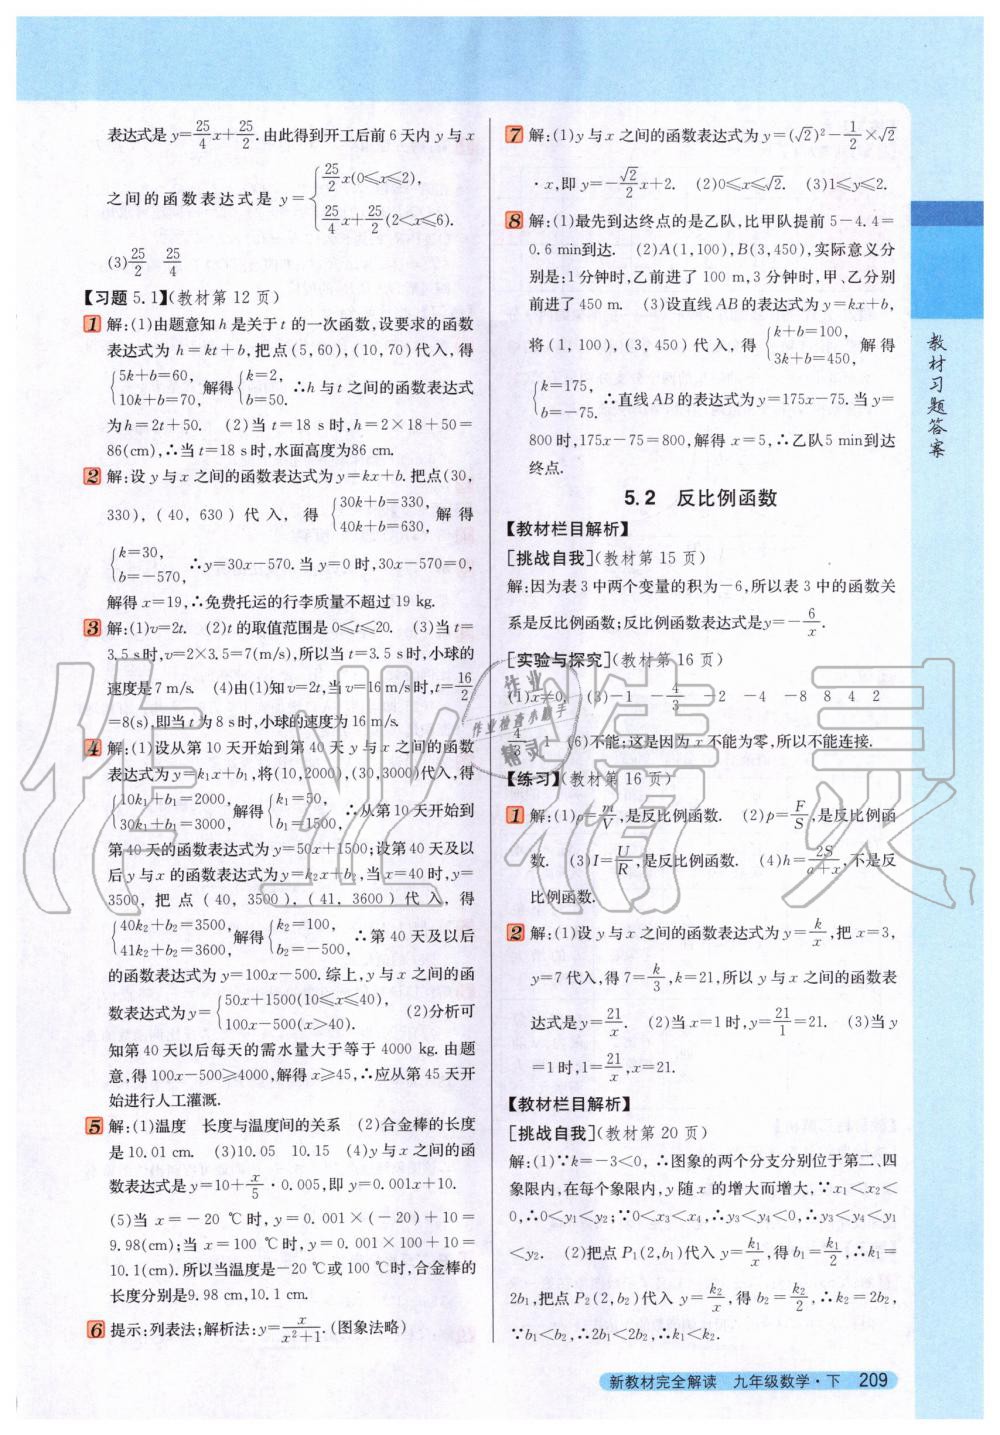 表达式是 y=25/4x+25/2.由此得到开工后前 6 天内 y 与 x
之间的函数表达式是 y={25/2x(0≤x≤2),
25/4x+25/2(2<x≤6).
(3)25/2 25/4
【习题 5.1】(教材第 12 页)
1 解:(1)由题意知 h 是关于 t 的一次函数,设要求的函数
表达式为 h=kt+b,把点(5,60),(10,70)代入,得
{5k+b=60, 10k+b=70,解得{k=2, b=50. ∴h 与 t 之间的函数表达式
为h=2t+50. (2)当 t=18 s时,h=2×18+50=
86(cm),∴当 t=18 s时,水面高度为86 cm.
2 解:设 y 与 x 之间的函数表达式为 y=kx+b.把点(30,
330),(40,630)代入,得{30k+b=330, 40k+b=630,解得
{k=30, b=-570, ∴y=30x-570.当 y=0 时,30x-570=0,
解得 x=19,∴免费托运的行李质量不超过 19 kg.
3 解:(1)v=2t. (2)t 的取值范围是 0≤t≤20. (3)当 t=
3.5 s时,v=2×3.5=7(m/s),所以当 t=3.5 s时,小球的
速度是 7 m/s. (4)由(1)知 v=2t,当 v=16 m/s时,t=16/2
=8(s),即当 t 为 8 s时,小球的速度为 16 m/s.
4 解:(1)设从第 10 天开始到第 40 天 y 与 x 之间的函数
表达式为 y=k₁x+b₁,将(10,2000),(30,3000)代入,得
{10k₁+b₁=2000, 30k₁+b₁=3000,解得{k₁=50, b₁=1500, ∴从第 10 天开始到
第 40 天的函数表达式为 y=50x+1500;设第 40 天及以
后 y 与 x 的函数表达式为 y=k₂x+b₂,当 x=40 时,y=
3500,把点(40,3500),(41,3600)代入,得
{40k₂+b₂=3500, 41k₂+b₂=3600,解得{k₂=100, b₂=-500, ∴第 40 天及以后
的函数表达式为 y=100x-500.综上,y 与 x 之间的函
数表达式为 y={50x+1500(10≤x≤40), 100x-500(x>40). (2)分析可
知第 40 天以后每天的需水量大于等于 4000 kg.由题
意,得 100x-500≥4000,解得 x≥45,∴应从第 45 天开
始进行人工灌溉.
5 解:(1)温度 长度与温度间的关系 (2)合金棒的长度
是 10.01 cm. (3)10.05 10.15 (4)y 与 x 之间的函
数表达式是 y=10+x/5·0.005,即 y=0.001x+10.
(5)当 x=-20 ℃时,y=0.001×(-20)+10=
9.98(cm);当 x=100 ℃时,y=0.001×100+10=
10.1(cm).所以当温度是-20 ℃或 100 ℃时,合金棒的
长度分别是9.98 cm,10.1 cm.
6 提示:列表法;解析法:y=x/(x²+1).(图象法略)
7 解:(1)y 与 x 之间的函数表达式为 y=(√2)²-1/2×√2
·x,即 y=-√2/2x+2. (2)0≤x≤√2. (3)1≤y≤2.
8 解:(1)最先到达终点的是乙队,比甲队提前 5-4.4=
0.6 min到达. (2)A(1,100),B(3,450),实际意义分
别是:1 分钟时,乙前进了 100 m,3 分钟时,甲、乙分别
前进了 450 m. (3)设直线 AB 的表达式为 y=kx+b,
将(1,100),(3,450)代入,得{k+b=100, 3k+b=450,解得
{k=175, b=-75. ∴直线 AB 的表达式为 y=175x-75.当 y=
800 时,175x-75=800,解得 x=5,∴乙队5 min到达
终点.
5.2 反比例函数
【教材栏目解析】
[挑战自我](教材第 15 页)
解:因为表 3 中两个变量的积为-6,所以表 3 中的函数关
系是反比例函数;反比例函数表达式是 y=-6/x.
[实验与探究](教材第 16 页)
(1)x≠0. (3)-1 -4/3 -2 -4 -8 8 4 2
4/3 1 (6)不能;这是因为 x 不能为零,所以不能连接.
【练习】(教材第 16 页)
1 解:(1)ρ=m/V,是反比例函数. (2)p=F/S,是反比例函
数. (3)I=U/R,是反比例函数. (4)h=2S/(a+x),不是反
比例函数.
2 解:(1)设 y 与 x 之间的函数表达式为 y=k/x,把 x=3,
y=7 代入,得 7=k/3,k=21,所以 y 与 x 之间的函数表
达式是 y=21/x. (2)当 x=1 时,y=21/1=21. (3)当 y
=1时,1=21/x,x=21.
【教材栏目解析】
[挑战自我](教材第 20 页)
解:(1)∵k=-3<0,∴图象的两个分支分别位于第二、四
象限内,在每个象限内,y 随 x 的增大而增大,∵x₁<x₂<
0,∴0<y₁<y₂;∵0<x₃<x₄,∴y₃<y₄<0,∴y₃<y₄<y₁
<y₂. (2)把点 P₁(2,b₁)代入 y=k₁/x,得 b₁=k₁/2,∴k₁=
2b₁,把点 P₂(2,b₂)代入 y=k₂/x,得 b₂=k₂/2,∴k₂=2b₂,
∵b₁<b₂,∴2b₁<2b₂,∴k₁<k₂.
教材习题答案
新教材完全解读 九年级数学·下 209
作业精灵
作业
作业检查小助手
精灵